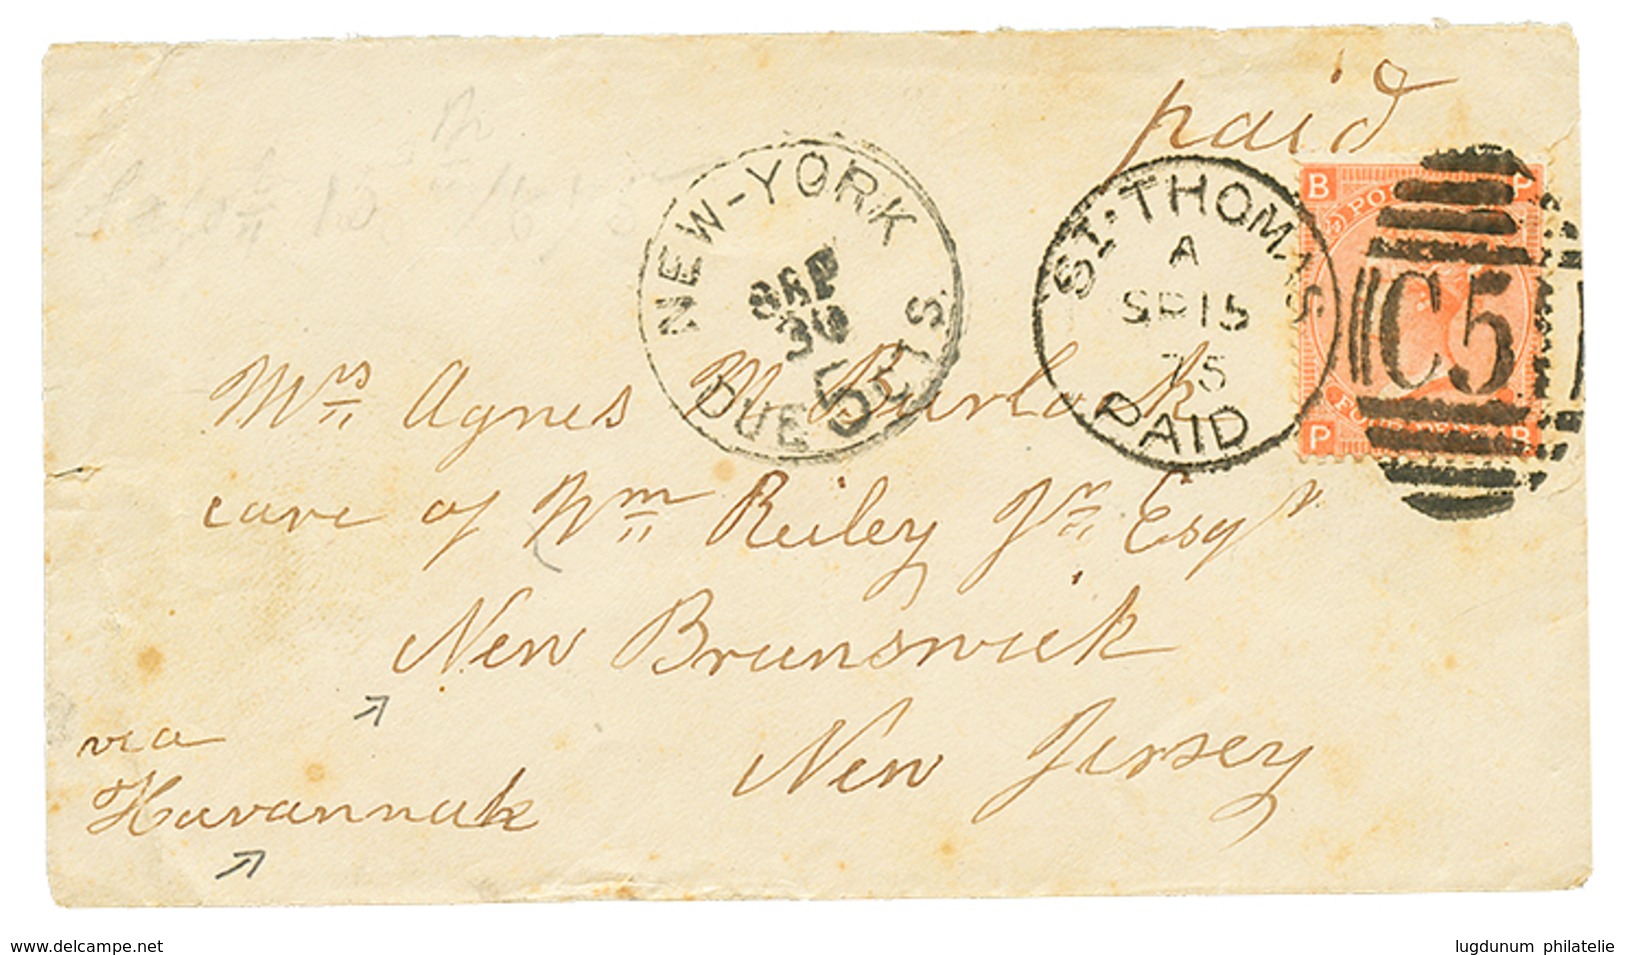 paid
NEW-YORK
SEP
30
DUE 5 CTS
ST. THOMAS
A
SP 15
75
PAID
B P
C5
P B
Mrs Agnes M Burlock
care of Wm Reiley Jr Esqr
New Brunswick
New Jersey
via
Havannah
www.delcampe.net
lugdunum philatelie